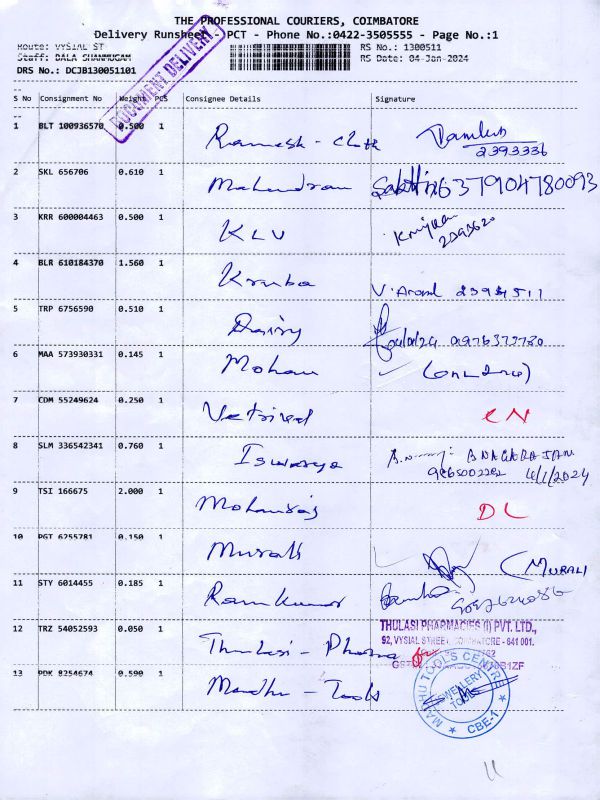 THE PROFESSIONAL COURIERS, COIMBATORE
Delivery Runsheet - PCT - Phone No.:0422-3505555 - Page No.:1
Route: VYSIAL ST
RS No.: 1300511
Staff: BALA SHANMUGAM
RS Date: 04-Jan-2024
DRS No.: DCJB130051101
DOCUMENT DELIVERY
S No Consignment No Weight PCS Consignee Details Signature
1 BLT 100936570 0.500 1 Ramesh - Cloth
2393336
2 SKL 656706 0.610 1 Mahendran Sakthi 637904780093
3 KRR 600004463 0.500 1 KLV
2393620
4 BLR 610184370 1.560 1 Kruba V. Arond 23934511
5 TRP 6756590 0.510 1 Dairy 04/01/24
6 MAA 573930331 0.145 1 Mohan
7 CDM 55249624 0.250 1 Vetrivel CN
8 SLM 336542341 0.760 1 Iswarya B NAGARAJAN
4/1/2024
9 TSI 166675 2.000 1 Mohanraj DL
10 PGT 6255781 0.150 1 Murali (MURALI
11 STY 6014455 0.185 1 Ramkumar
12 TRZ 54052593 0.050 1 Thulasi - Pharma
THULASI PHARMACIES (I) PVT. LTD.,
92, VYSIAL STREET, COIMBATORE - 641 001.
13 PDK 8254674 0.590 1 Madhu - Tools
MADHU TOOLS CENTRE
JEWELLERY
TOOLS
CBE-1